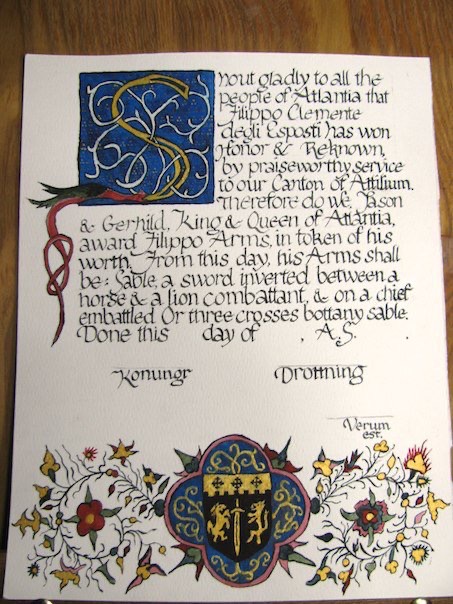 Shout gladly to all the
people of Atlantia that
Filippo Clemente
degli Esposti has won
Honor & Reknown,
by praiseworthy service
to our Canton of Attilium.
Therefore do we, Jason
& Gerhild, King & Queen of Atlantia,
award Filippo Arms, in token of his
worth. From this day, his Arms shall
be: Sable, a sword inverted between a
horse & a lion combattant, & on a chief
embattled Or three crosses bottany sable.
Done this day of , A.S. .
Konungr Drottning
Verum
est.